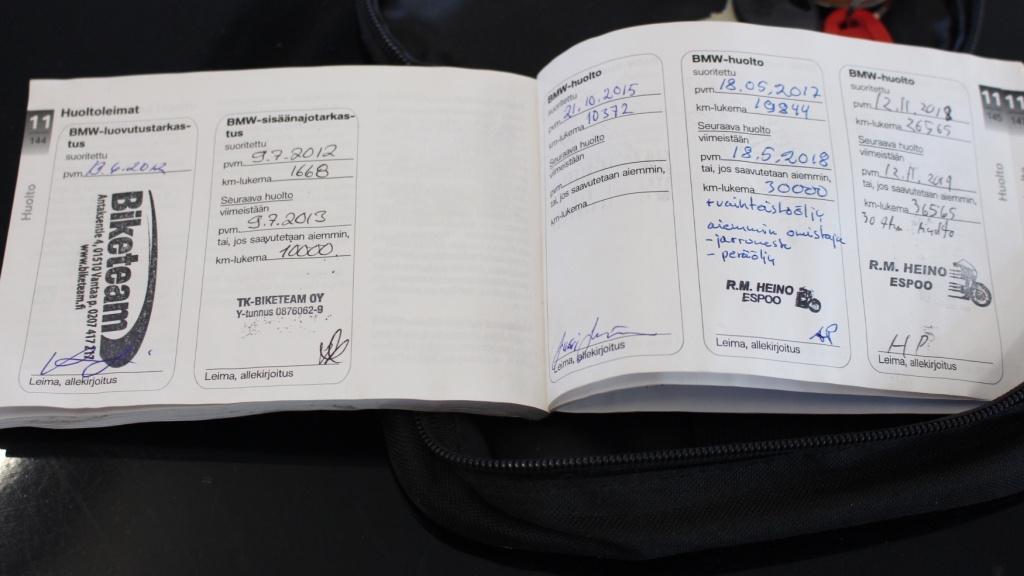 11
144
Huolto
Huoltoleimat
BMW-luovutustarkas-
tus
suoritettu
pvm.
Biketeam
Antaksentie 4, 01510 Vantaa p. 0207 417
www.biketeam.fi
Leima, allekirjoitus
BMW-sisäänajotarkas-
tus
suoritettu
pvm. 9.7.2012
km-lukema 1668
Seuraava huolto
viimeistään
pvm. 9.7.2013
tai, jos saavutetaan aiemmin,
km-lukema 10000
TK-BIKETEAM OY
Y-tunnus 0876062-9
Leima, allekirjoitus
BMW-huolto
suoritettu
pvm. 21.10.2015
km-lukema 10372
Seuraava huolto
viimeistään
pvm.
tai, jos saavutetaan aiemmin,
km-lukema
Leima, allekirjoitus
BMW-huolto
suoritettu
pvm. 18.05.2017
km-lukema 19844
Seuraava huolto
viimeistään
pvm. 18.5.2018
tai, jos saavutetaan aiemmin,
km-lukema 30000
+vaihteistoöljy
aiemmin omistaja
-jarruneste
- peräöljy
R.M. HEINO
ESPOO
Leima, allekirjoitus
BMW-huolto
suoritettu
pvm. 12.11.2018
km-lukema 26565
Seuraava huolto
viimeistään
pvm. 12.11.2019
tai, jos saavutetaan aiemmin,
km-lukema 36565
huolto
R.M. HEINO
ESPOO
HP.
Leima, allekirjoitus
11
145
Huolto
11